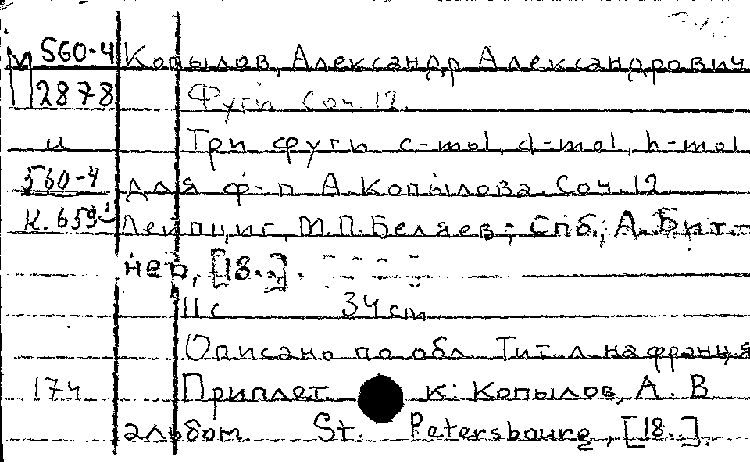 М 560-4 Копылов, Александр Александрович
2878 Фуги Соч. 12.
и Три фуги c-mol, d-mol, h-mol
560-4 для ф-п. А. Копылова. Соч. 12
К. 659 Лейпциг, М.П. Беляев; Спб., А. Битт-
нер, [18..].
11 с 34 cm
Описано по обл. Тит. л. на француз
174 Приплет к: Копылов, А. В
альбом St. Petersbourg, [18..].